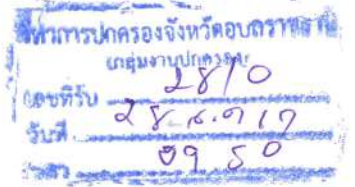 ที่ทำการปกครองจังหวัดอุบลราชธานี
กลุ่มงานปกครอง
เลขที่รับ 2810
วันที่ 28
เวลา 09 50